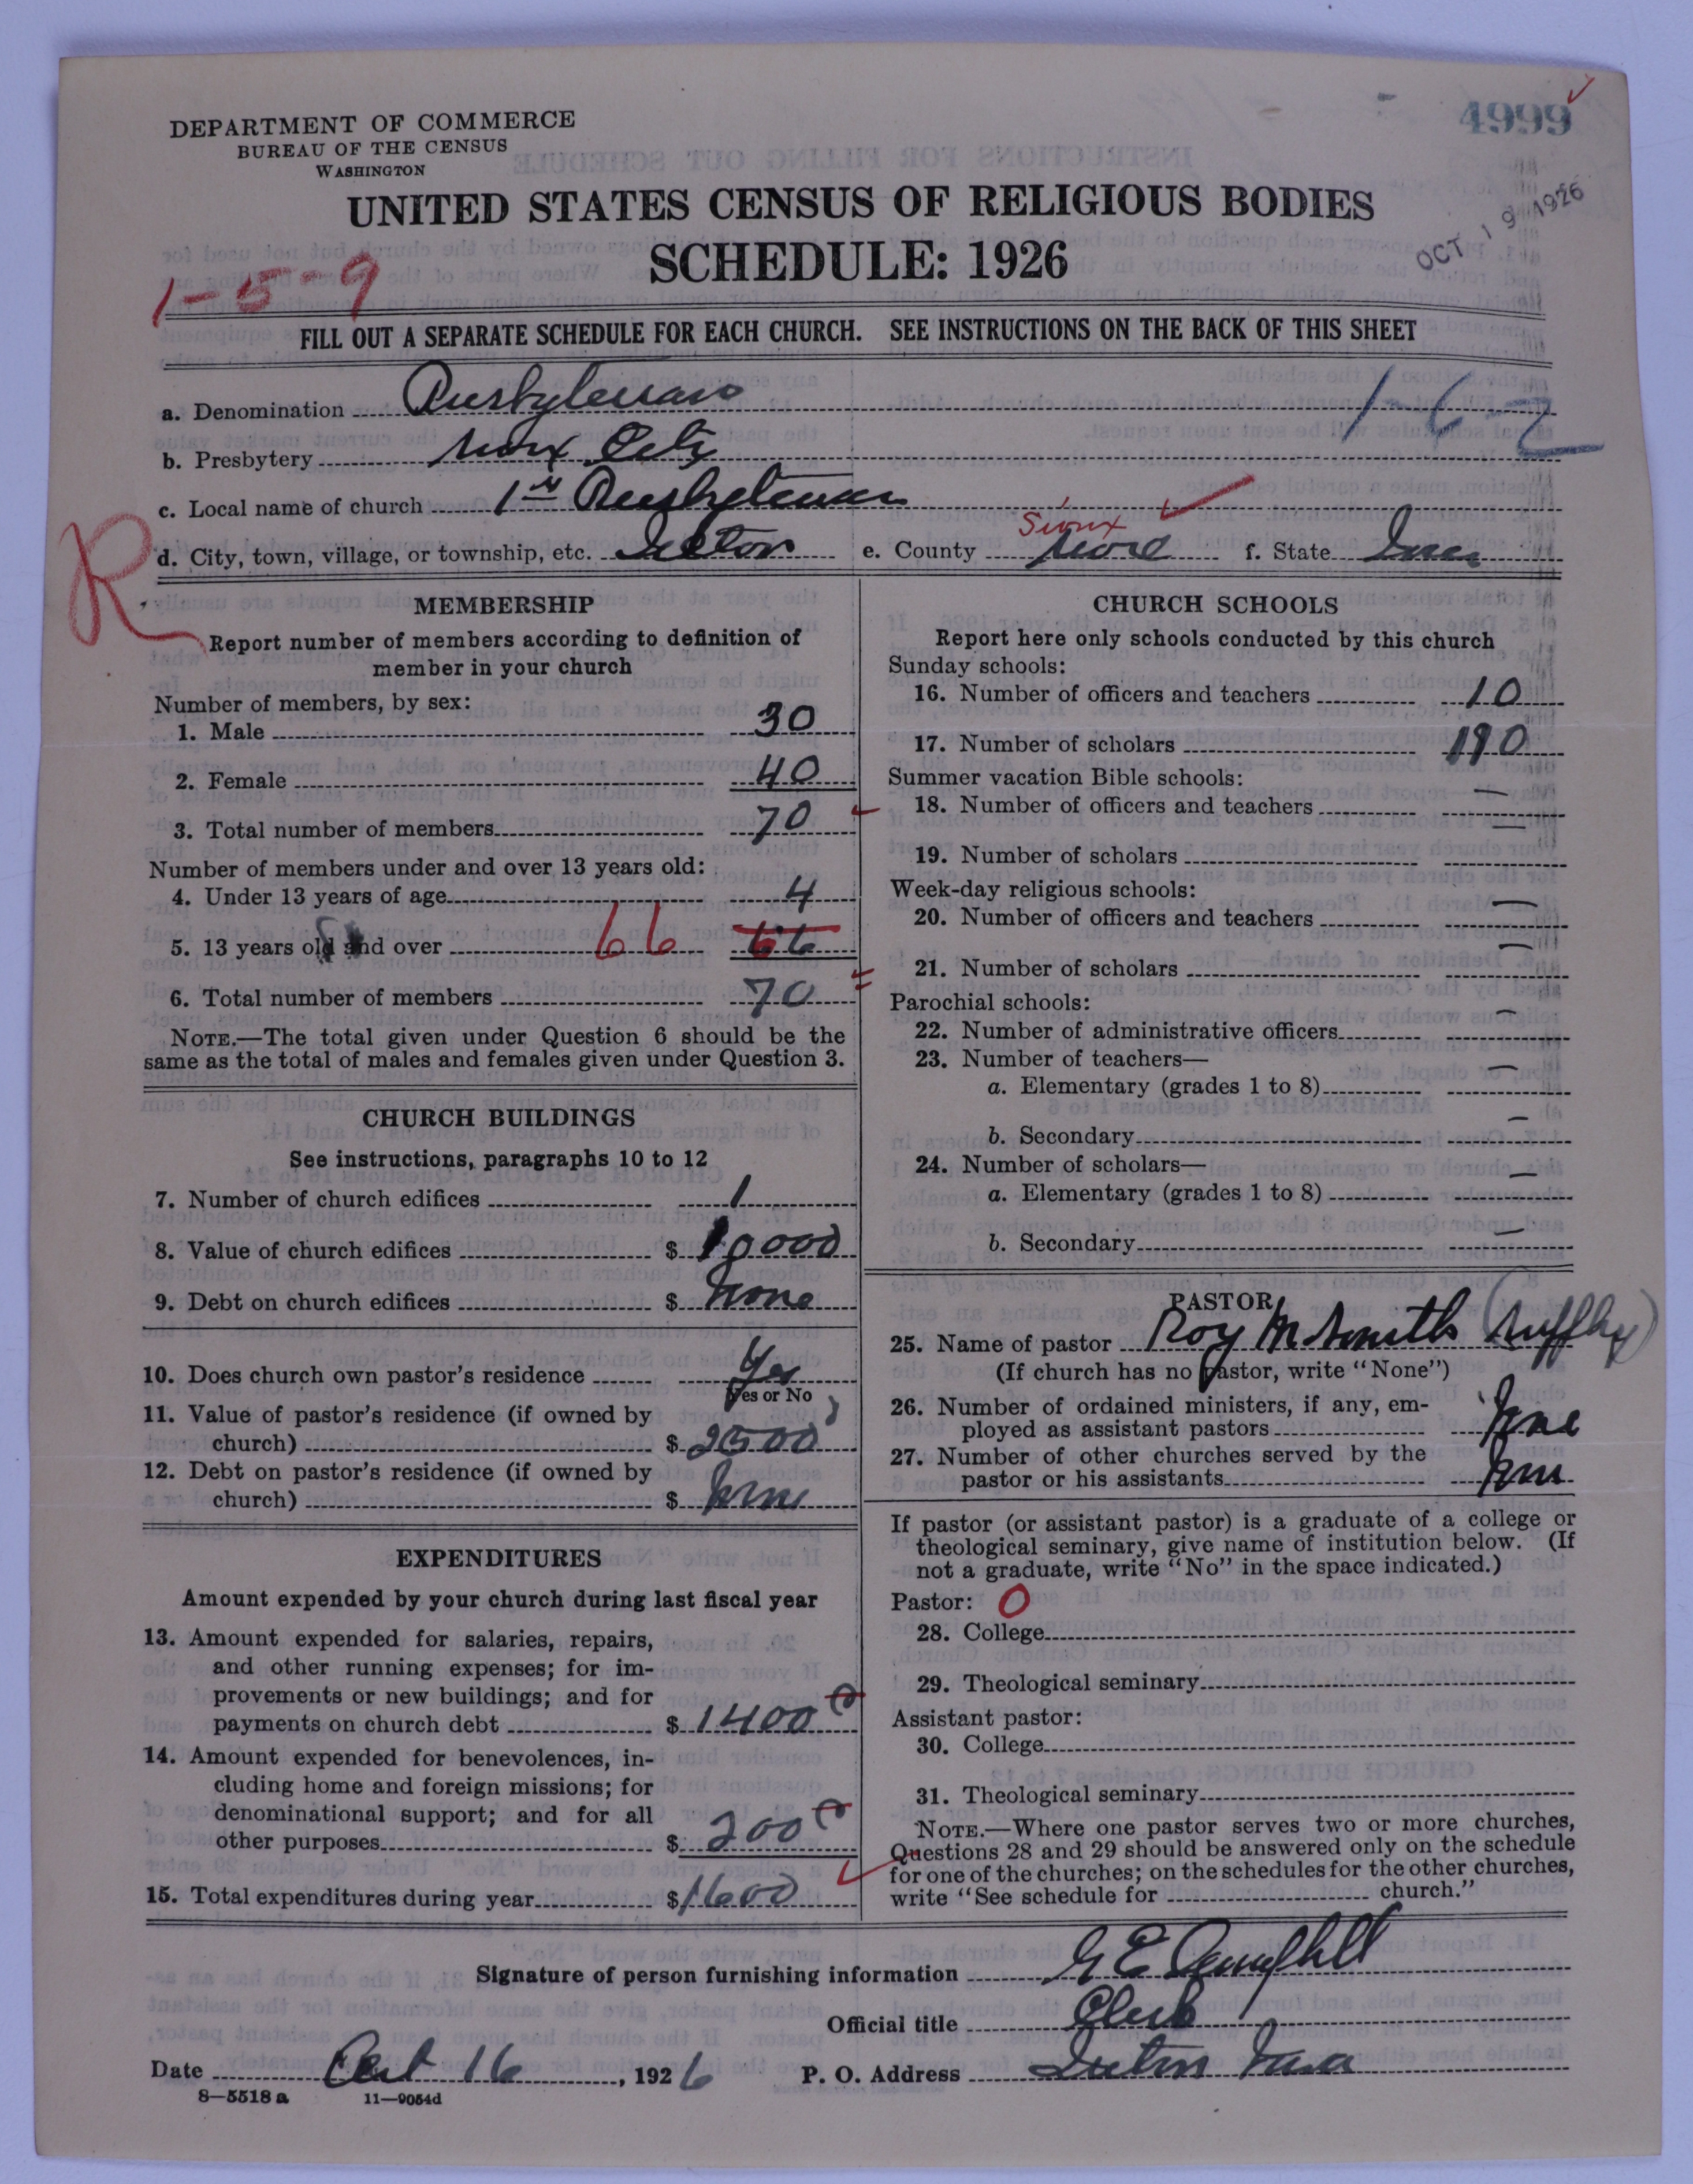 4999
DEPARTMENT OF COMMERCE
BUREAU OF THE CENSUS
WASHINGTON
UNITED STATES CENSUS OF RELIGIOUS BODIES
SCHEDULE: 1926
OCT 19 1926
1-5-9
FILL OUT A SEPARATE SCHEDULE FOR EACH CHURCH. SEE INSTRUCTIONS ON THE BACK OF THIS SHEET
a. Denomination Presbyterian
1-6-2
b. Presbytery Sioux City
c. Local name of church 1st Presbyterian
R
d. City, town, village, or township, etc. Ireton e. County Sioux Sioux f. State Iowa
MEMBERSHIP
Report number of members according to definition of
member in your church
Number of members, by sex:
1. Male 30
2. Female 40
3. Total number of members 70
Number of members under and over 13 years old:
4. Under 13 years of age 4
5. 13 years old and over 66 66
6. Total number of members 70
NOTE.—The total given under Question 6 should be the
same as the total of males and females given under Question 3.
CHURCH BUILDINGS
See instructions, paragraphs 10 to 12
7. Number of church edifices 1
8. Value of church edifices $ 10000
9. Debt on church edifices $ None
10. Does church own pastor's residence Yes
Yes or No
11. Value of pastor's residence (if owned by
church) $ 2500
12. Debt on pastor's residence (if owned by
church) $ None
EXPENDITURES
Amount expended by your church during last fiscal year
13. Amount expended for salaries, repairs,
and other running expenses; for im-
provements or new buildings; and for
payments on church debt $ 1400
14. Amount expended for benevolences, in-
cluding home and foreign missions; for
denominational support; and for all
other purposes $ 200
15. Total expenditures during year $ 1600
CHURCH SCHOOLS
Report here only schools conducted by this church
Sunday schools:
16. Number of officers and teachers 10
17. Number of scholars 190
Summer vacation Bible schools:
18. Number of officers and teachers —
19. Number of scholars —
Week-day religious schools:
20. Number of officers and teachers —
21. Number of scholars —
Parochial schools:
22. Number of administrative officers —
23. Number of teachers—
a. Elementary (grades 1 to 8) —
b. Secondary —
24. Number of scholars—
a. Elementary (grades 1 to 8) —
b. Secondary —
PASTOR
25. Name of pastor Roy M Smith (Supply)
(If church has no pastor, write "None")
26. Number of ordained ministers, if any, em-
ployed as assistant pastors None
27. Number of other churches served by the
pastor or his assistants None
If pastor (or assistant pastor) is a graduate of a college or
theological seminary, give name of institution below. (If
not a graduate, write "No" in the space indicated.)
Pastor: 0
28. College
29. Theological seminary
Assistant pastor:
30. College
31. Theological seminary
NOTE.—Where one pastor serves two or more churches,
Questions 28 and 29 should be answered only on the schedule
for one of the churches; on the schedules for the other churches,
write "See schedule for church."
Signature of person furnishing information G E
Official title Clerk
Date Oct 16, 1926 P. O. Address Ireton Iowa
8—5518 a 11—9054d